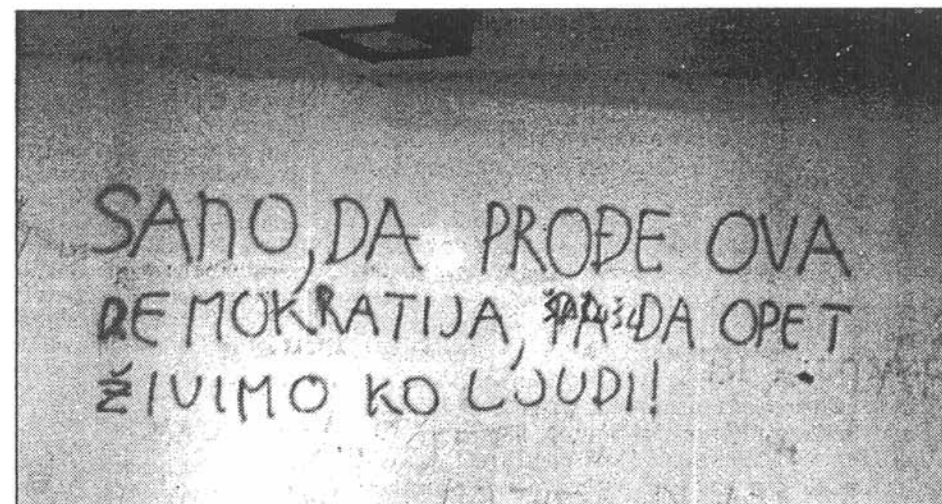 SAMO, DA PROĐE OVA
DEMOKRATIJA, PA DA OPET
ŽIVIMO KO LJUDI!